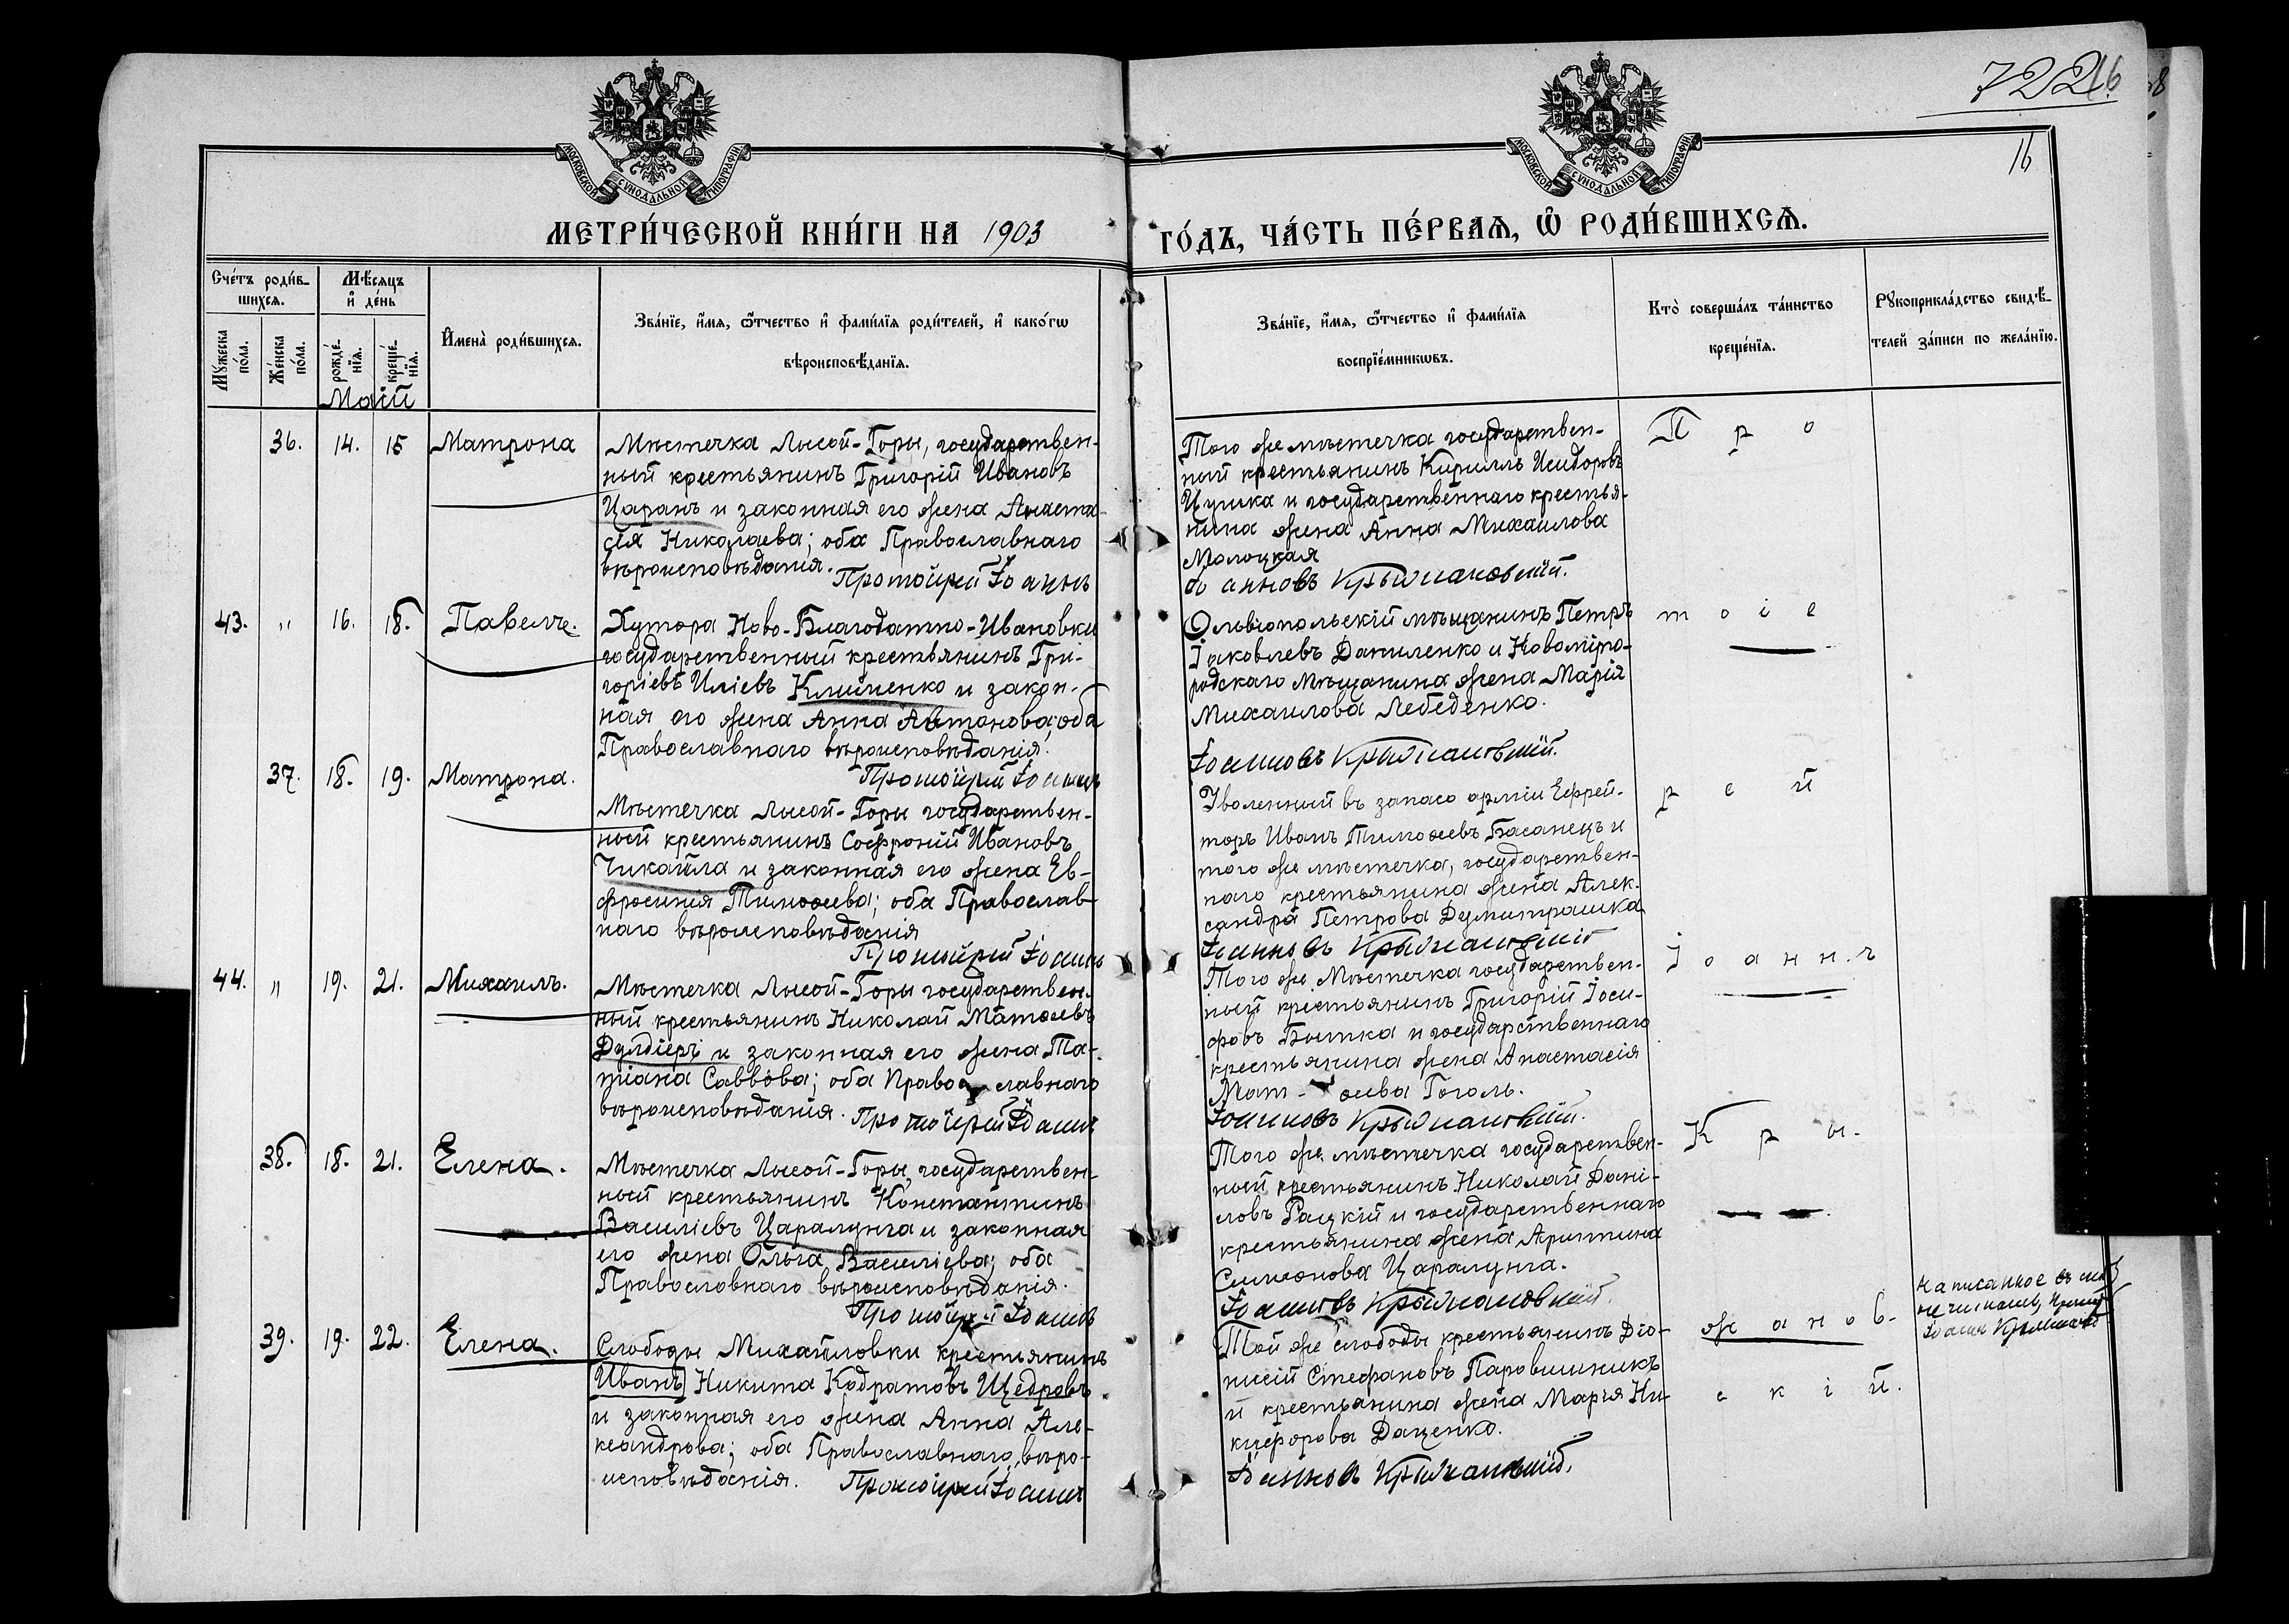 7226
16
МОСКОВСКОЙ СѴНОДАЛЬНОЙ ТИПОГРАФІИ
МОСКОВСКОЙ СѴНОДАЛЬНОЙ ТИПОГРАФІИ
МЕТРИ́ЧЕСКОЙ КНИ́ГИ НА 1903
ГО́ДЪ, ЧА́СТЬ ПЕ́РВАЯ, Ѡ РОДИ́ВШИХСЯ.
Сче́тъ роди́в-
шихся.
Мꙋ́жеска по́ла.
Же́нска по́ла.
Мѣ́сяцъ и҆ де́нь
рожде́-
нїѧ.
креще́-
нїѧ.
И҆мена̀ роди́вшихся.
Зва́нїе, и҆́мя, ѻ҆́тчество и҆ фами́лїя роди́телей, и҆ како́гѡ
вѣроисповѣ́данїя.
Зва́нїе, и҆́мя, ѻ҆́тчество и҆ фами́лїя
воспрїе́мникѡвъ.
Кто̀ соверша́лъ та́инство
креще́нїя.
Рꙋкоприкла́дство свидѣ́-
телей за́писи по жела́нїю.
Май
36. 14. 15 Матрона
Мѣстечка Лысой-Горы, государствен-
ный крестьянинъ Григорій Ивановъ
Царанъ и законная его жена Анаста-
сія Николаева; оба Православнаго
вѣроисповѣданія.
Протоіерей Іоаннъ
Того же мѣстечка государствен-
ный крестьянинъ Кириллъ Исидоровъ
Цушка и государственнаго крестья-
нина жена Анна Михаилова
Молоцкая
Іоанновъ Крыжановскій.
П р о
43. " 16. 18. Павелъ.
Хутора Ново-Благодатно-Ивановки
государственный крестьянинъ Гри-
горіевъ Иліевъ Клименко и закон-
ная его жена Анна Автонова; оба
Православнаго вѣроисповѣданія.
Протоіерей Іоаннъ
Ольвіопольскій мѣщанинъ Петръ
Іаковлевъ Даниленко и Новоміро-
родскаго мѣщанина жена Марія
Михаилова Лебеденко.
Іоанновъ Крыжановскій.
т о і е
37. 18. 19. Матрона.
Мѣстечка Лысой-Горы государствен-
ный крестьянинъ Софроній Ивановъ
Чикайла и законная его жена Ев-
фросинія Тимоѳеева; оба Православ-
наго вѣроисповѣданія
Протоіерей Іоаннъ
Уволенный въ запасъ арміи Ефрей-
торъ Иванъ Тимоѳеевъ Басанецъ и
того же мѣстечка, государствен-
наго крестьянина жена Алек-
сандра Петрова Думитрашка
Іоанновъ Крыжановскій
р е й
44. " 19. 21. Михаилъ.
Мѣстечка Лысой-Горы государствен-
ный крестьянинъ Николай Матѳеевъ
Дулдіеръ и законная его жена Та-
тіана Саввова; оба Православнаго
вѣроисповѣданія.
Протоіерей Іоаннъ
Того же Мѣстечка государствен-
ный крестьянинъ Григорій Іоси-
фовъ Бытка и государственнаго
крестьянина жена Анастасія
Мат-ѳеева Гоголь.
Іоанновъ Крыжановскій.
І о а н н ъ
38. 18. 21. Елена.
Мѣстечка Лысой-Горы, государствен-
ный крестьянинъ Константинъ
Василіевъ Царалунга и законная
его жена Ольга Василіева; оба
Православнаго вѣроисповѣданія.
Протоіерей Іоаннъ
Того же мѣстечка государствен-
ный крестьянинъ Николай Дани-
ловъ Рацкій и государственнаго
крестьянина жена Христина
Симеонова Царалунга.
Іоанновъ Крыжановскій.
К р ы-
39. 19. 22. Елена.
Слободы Михайловки крестьянинъ
Иванъ Никита Кодратовъ Щедровъ
и законная его жена Анна Але-
ксандрова; оба Православнаго вѣро-
исповѣданія.
Протоіерей Іоаннъ
Той же слободы крестьянинъ Діо-
нисій Стефановъ Паровшникъ
и крестьянина жена Марія Ни-
кифорова Даценко.
Іоанновъ Крыжановскій.
ж а н о в-
с к і й.
Написанное въ
Іоаннъ Крыжан